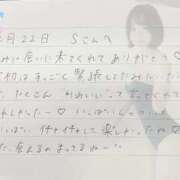 月22日 Sさんへ
みに会いに来てくれてありがとう♡
初はすっごく緊張してたみたい
たくさん かわいいって言ってくれて
しかった〜♡ いっぱい
イチャイチャして楽しかったね♡
た、会えるの まってるね〜